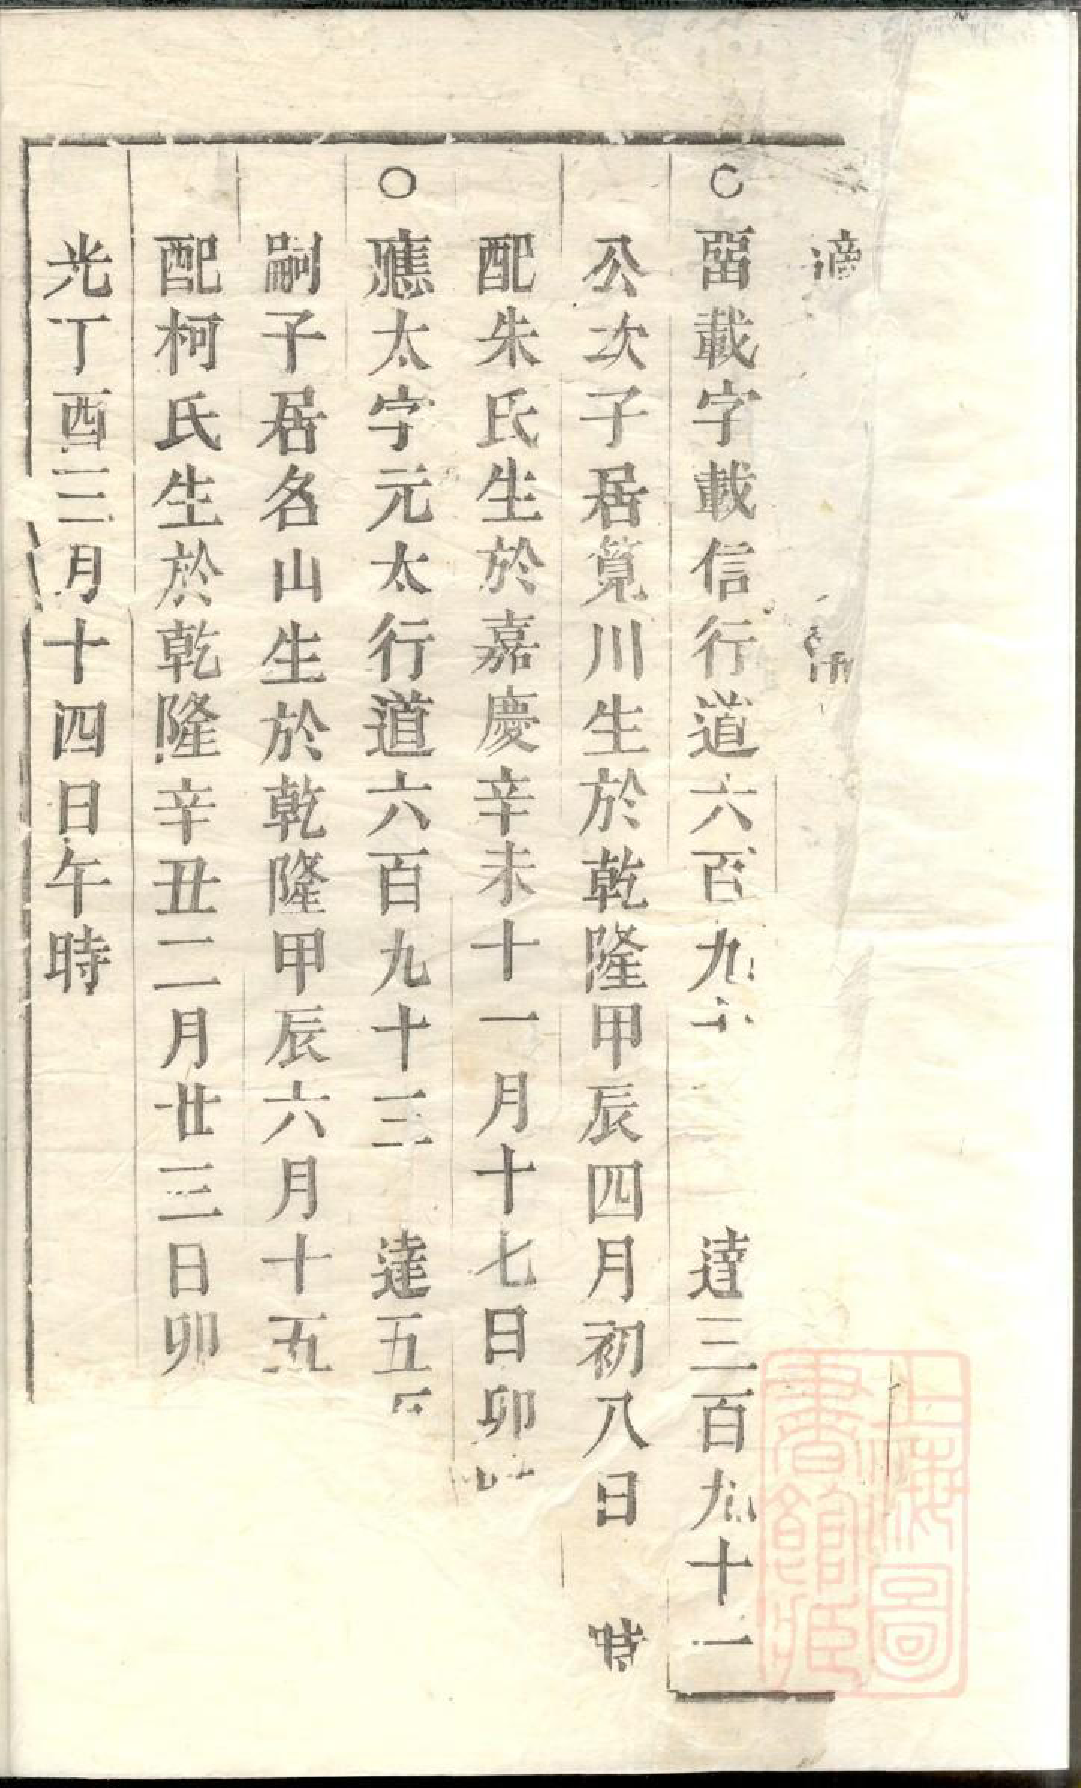 適
○畱載字載信行道六百九 達三百九十一
公次子居筧川生於乾隆甲辰四月初八日 時
配朱氏生於嘉慶辛未十一月十七日卯
○應太字元太行道六百九十三 達五
嗣子居名山生於乾隆甲辰六月十五
配柯氏生於乾隆辛丑二月廿三日卯
光丁酉三月十四日午時
上海圖書館藏